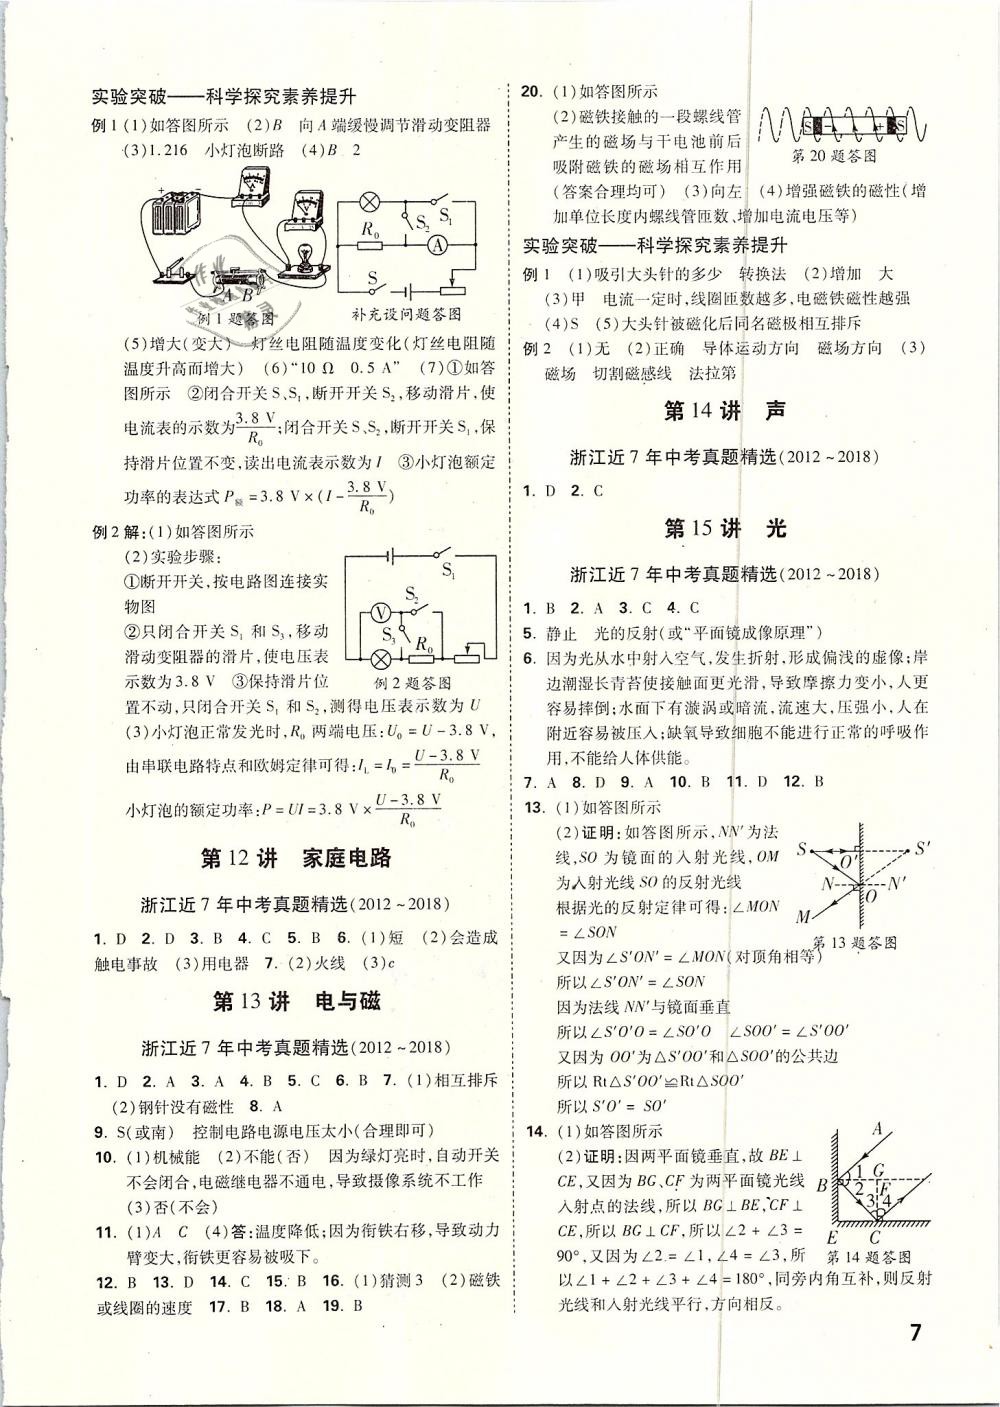 实验突破——科学探究素养提升
例1(1)如答图所示 (2)B 向A端缓慢调节滑动变阻器
(3)1.216 小灯泡断路 (4)B 2
A B
例1题答图
R₀ S₂ S₁
A
S
补充设问题答图
(5)增大(变大) 灯丝电阻随温度变化(灯丝电阻随
温度升高而增大) (6)“10 Ω 0.5 A” (7)①如答
图所示 ②闭合开关S、S₁,断开开关S₂,移动滑片,使
电流表的示数为3.8 V/R₀;闭合开关S、S₂,断开开关S₁,保
持滑片位置不变,读出电流表示数为I ③小灯泡额定
功率的表达式P额=3.8 V×(I-3.8 V/R₀)
例2解:(1)如答图所示
(2)实验步骤:
①断开开关,按电路图连接实
物图
②只闭合开关S₁ 和S₃,移动
滑动变阻器的滑片,使电压表
示数为3.8 V ③保持滑片位
置不动,只闭合开关S₁ 和S₂,测得电压表示数为U
S₁
S₂
V
S₃ R₀
例2题答图
(3)小灯泡正常发光时,R₀ 两端电压:U₀=U-3.8 V,
由串联电路特点和欧姆定律可得:I_L=I₀=U-3.8 V/R₀
小灯泡的额定功率:P=UI=3.8 V×U-3.8 V/R₀
第12讲 家庭电路
浙江近7年中考真题精选(2012~2018)
1. D 2. D 3. B 4. C 5. B 6. (1)短 (2)会造成
触电事故 (3)用电器 7. (2)火线 (3)c
第13讲 电与磁
浙江近7年中考真题精选(2012~2018)
1. D 2. A 3. A 4. B 5. C 6. B 7. (1)相互排斥
(2)钢针没有磁性 8. A
9. S(或南) 控制电路电源电压太小(合理即可)
10. (1)机械能 (2)不能(否) 因为绿灯亮时,自动开关
不会闭合,电磁继电器不通电,导致摄像系统不工作
(3)否(不会)
11. (1)A C (4)答:温度降低;因为衔铁右移,导致动力
臂变大,衔铁更容易被吸下。
12. B 13. D 14. C 15. B 16. (1)猜测3 (2)磁铁
或线圈的速度 17. B 18. A 19. B
20. (1)如答图所示
(2)磁铁接触的一段螺线管
产生的磁场与干电池前后
吸附磁铁的磁场相互作用
S - + S
第20题答图
(答案合理均可) (3)向左 (4)增强磁铁的磁性(增
加单位长度内螺线管匝数、增加电流电压等)
实验突破——科学探究素养提升
例1 (1)吸引大头针的多少 转换法 (2)增加 大
(3)甲 电流一定时,线圈匝数越多,电磁铁磁性越强
(4)S (5)大头针被磁化后同名磁极相互排斥
例2 (1)无 (2)正确 导体运动方向 磁场方向 (3)
磁场 切割磁感线 法拉第
第14讲 声
浙江近7年中考真题精选(2012~2018)
1. D 2. C
第15讲 光
浙江近7年中考真题精选(2012~2018)
1. B 2. A 3. C 4. C
5. 静止 光的反射(或“平面镜成像原理”)
6. 因为光从水中射入空气,发生折射,形成偏浅的虚像;岸
边潮湿长青苔使接触面更光滑,导致摩擦力变小,人更
容易摔倒;水面下有漩涡或暗流,流速大,压强小,人在
附近容易被压入;缺氧导致细胞不能进行正常的呼吸作
用,不能给人体供能。
7. A 8. D 9. A 10. B 11. D 12. B
13. (1)如答图所示
(2)证明:如答图所示,NN′为法
线,SO 为镜面的入射光线,OM
为入射光线SO的反射光线
根据光的反射定律可得:∠MON
=∠SON
S O′ S′
N N′
O
M
第13题答图
又因为∠S′ON′=∠MON(对顶角相等)
所以∠S′ON′=∠SON
因为法线NN′与镜面垂直
所以∠S′O′O=∠SO′O ∠SOO′=∠S′OO′
又因为 OO′为△S′OO′和△SOO′的公共边
所以Rt△S′OO′≌Rt△SOO′
所以S′O′= SO′
14. (1)如答图所示
(2)证明:因两平面镜垂直,故BE⊥
CE,又因为BG、CF为两平面镜光线
入射点的法线,所以BG⊥BE、CF⊥
CE,所以BG⊥CF,所以∠2+∠3=
90°,又因为∠2=∠1,∠4=∠3,所
以∠1+∠2+∠3+∠4=180°,同旁内角互补,则反射
光线和入射光线平行,方向相反。
A
1 G
B 2 F
3 4
E C
第14题答图
7